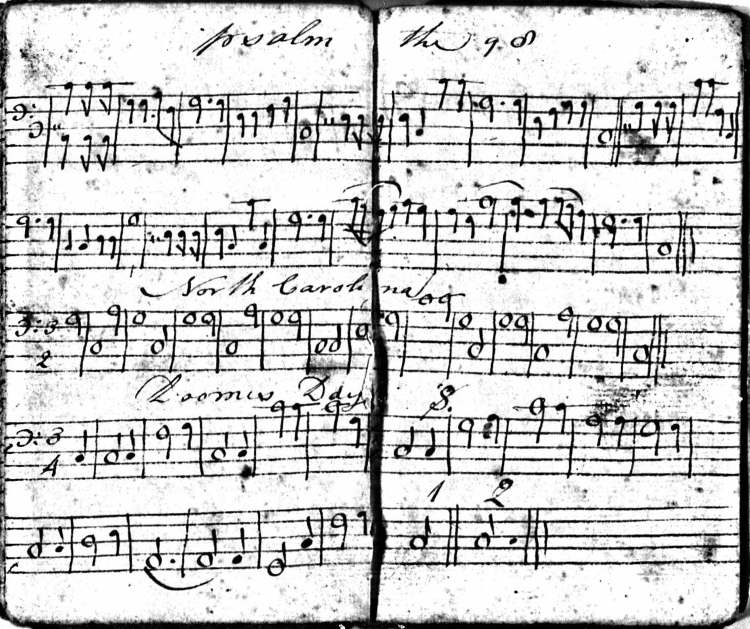 psalm the 98
North Carolina
3
2
Day
3
4
1 2